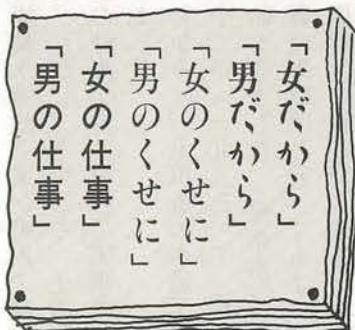 「女だから」
「男だから」
「女のくせに」
「男のくせに」
「女の仕事」
「男の仕事」